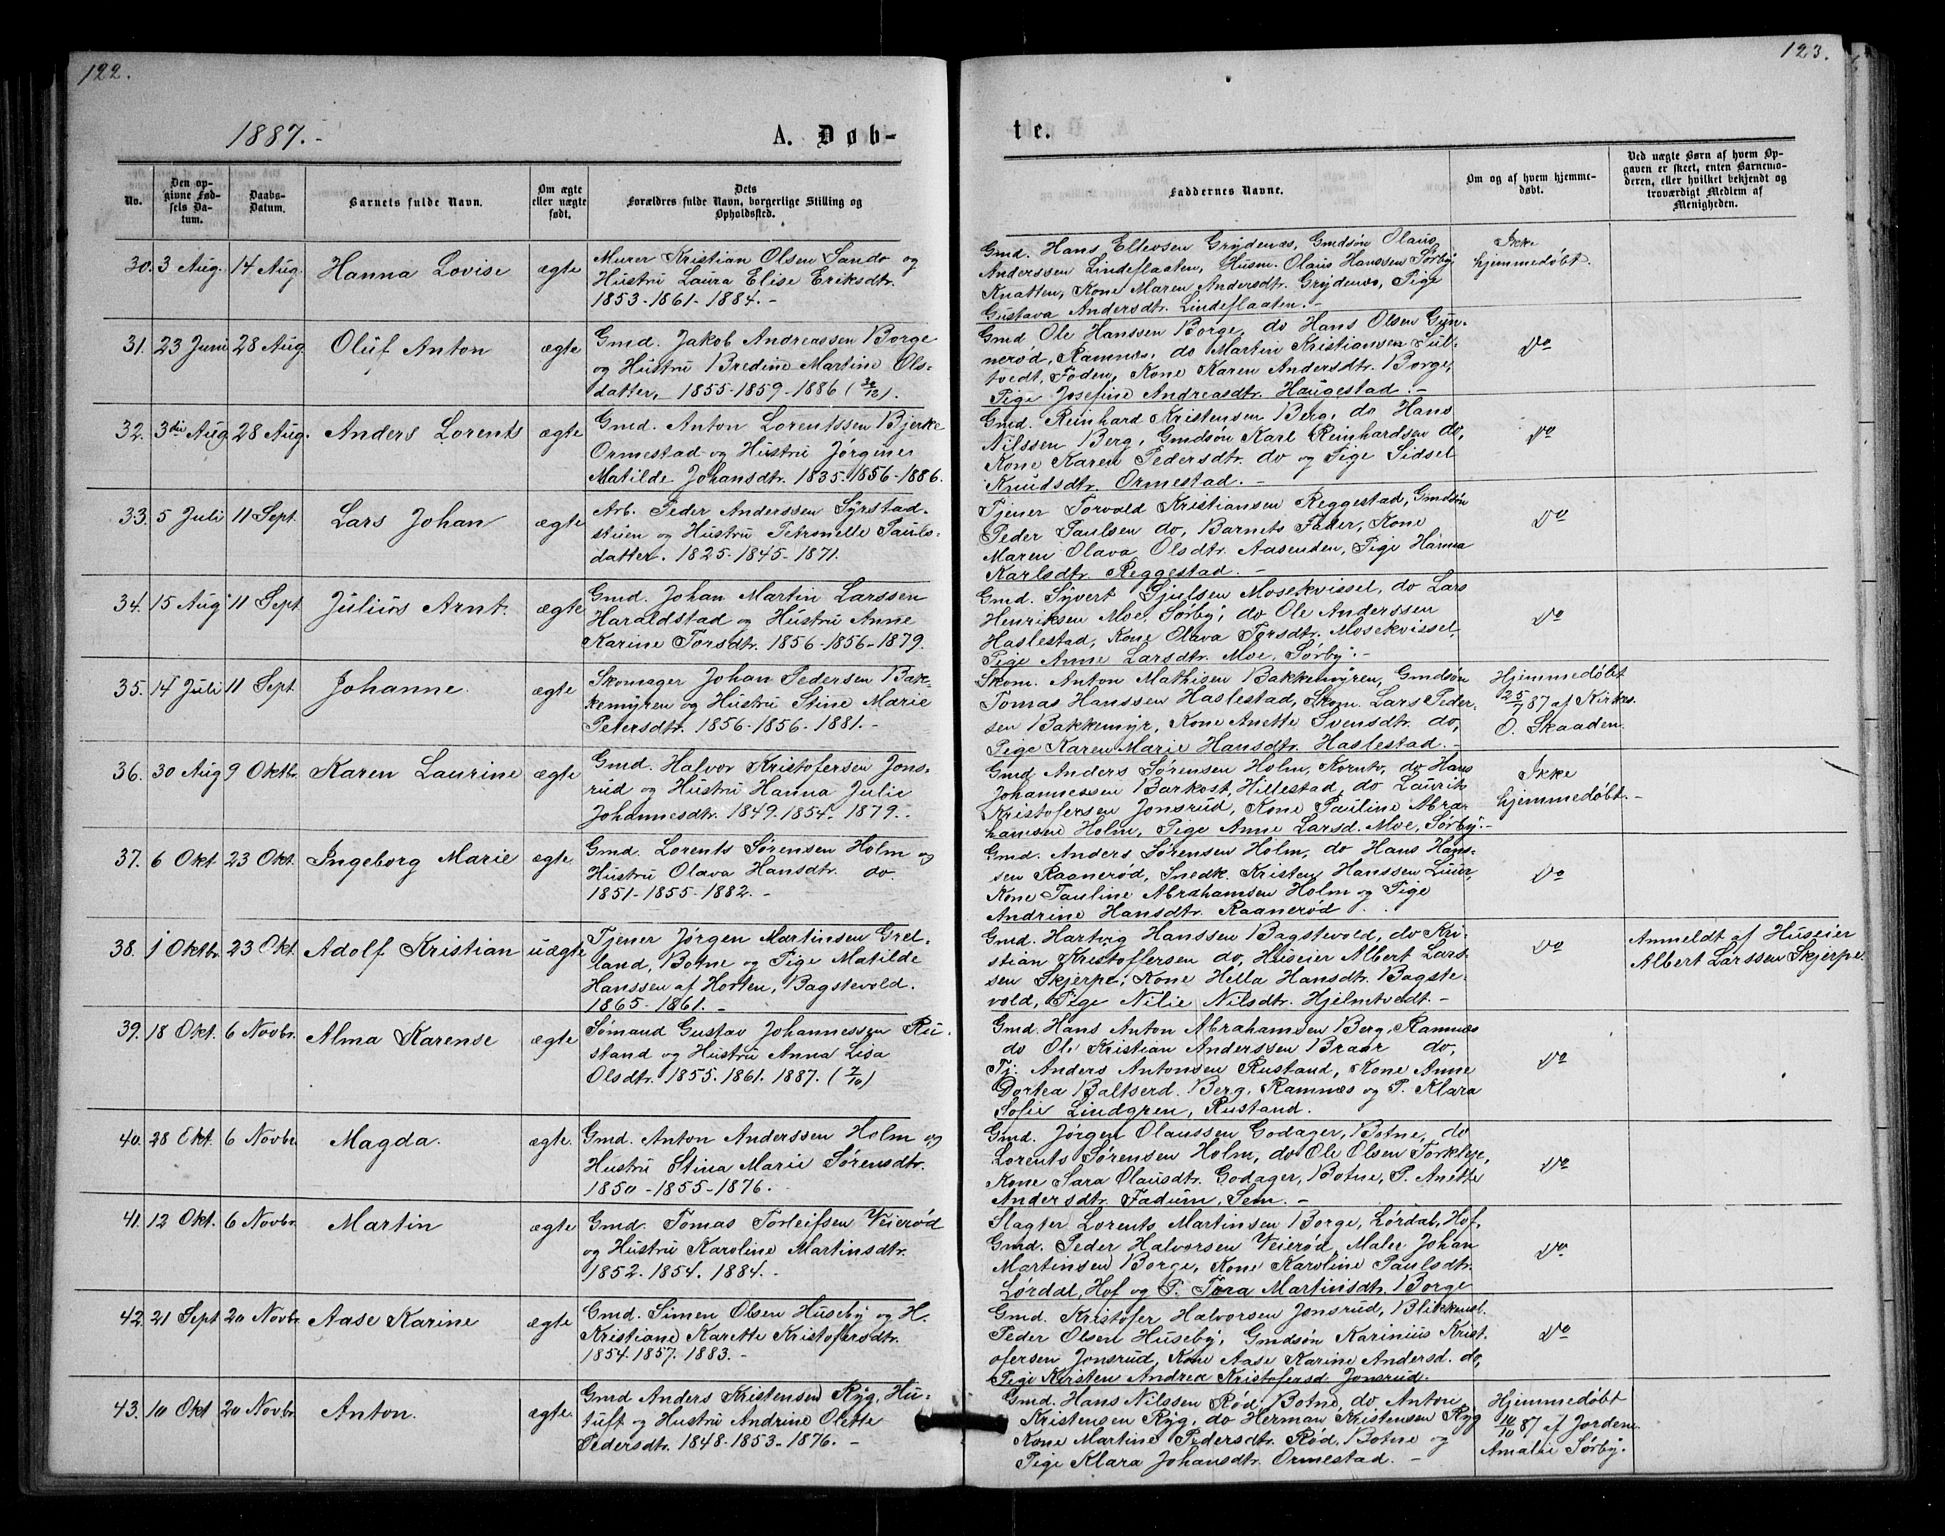 122.
123.
1887.-
A. Døb-
te.
No.
Den op-
givne Fød-
sels Da-
tum.
Daabs-
Datum.
Barnets fulde Navn.
Om ægte
eller uægte
født.
Dets
Forældres fulde Navn, borgerlige Stilling og
Opholdsted.
Faddernes Navne.
Om og af hvem hjemme-
døbt.
Ved uægte Børn af hvem Op-
gaven er skeet, enten Barnemo-
deren, eller hvilket bekjendt og
troværdigt Medlem af
Menigheden.
30. 3 Aug. 14 Aug. Hanna Lovise ægte
Murer Kristian Olsen Sando og
Hustru Laura Elise Eriksdtr.
1853-1861-1884.-
Gmd. Hans Ellevsen Grydenæs, Gmdsøn Olaus
Anderssen Lindeflaaten, Husm. Olaus Hanssen Sørby
Knatten, Kone Maren Andersdtr. Grydenæs, Pige
Gustava Andersdtr. Lindeflaaten.-
Ikke
hjemmedøbt.
31. 23 Juni 28 Aug. Oluf Anton ægte
Gmd. Jakob Andreassen Borge
og Hustru Bredine Martine Ols-
datter, 1855-1859-1886 (30/12).
Gmd Ole Hanssen Borge, do Hans Olsen Gun-
nerød, Ramnæs, do Martin Kristiansen Tul-
tvedt, Foden, Kone Karen Andersdtr. Borge,
Pige Josefine Andreasdtr. Haugestad.-
Do
32. 3die Aug 28 Aug. Anders Lorents ægte
Gmd. Anton Lorentssen Bjerke
Ormestad og Hustru Jørgine
Matilde Johansdtr. 1835-1856-1886.
Gmd. Reinhard Kristensen Berg, do Hans
Nilssen Berg, Gmdsøn Karl Reinhardsen do,
Kone Karen Pedersdtr. do og Pige Sidsel
Knudsdtr. Ormestad.-
Do
33. 5 Juli 11 Sept. Lars Johan ægte
Arb. Peder Anderssen Syrstad-
stuen og Hustru Petronelle Pauls-
datter. 1825-1845-1871.
Tjener Torvald Kristiansen Reggestad, Gmdsøn
Peder Paulsen do, Barnets Fader, Kone
Maren Olava Olsdtr. Aasenden, Pige Hanna
Karlsdtr. Reggestad.-
Do
34. 15 Aug 11 Sept. Julius Arnt. ægte
Gmd. Johan Martin Larssen
Haraldstad og Hustru Anne
Karine Torsdtr. 1856-1856-1879.
Gmd. Syvert Gjulsen Mosekvissel, do Lars
Henriksen Moe, Sørby, do Ole Anderssen
Haslestad, Kone Olava Torsdtr. Mosekvissel,
Pige Anne Larsdtr. Moe, Sørby.-
Do
35. 14 Juli 11 Sept. Johanne. ægte
Skomager Johan Pedersen Bak-
kemyren og Hustru Stine Marie
Petersdtr. 1856-1856-1881.-
Skom. Anton Mathisen Bakkemyren, Gmdsøn
Tomas Hanssen Haslestad, Skom. Lars Peder-
sen Bakkemyr, Kone Anette Svensdtr. do,
Pige Karen Marie Hansdtr. Haslestad.-
Hjemmedøbt
25/7 87 af Kirkes.
O. Skaaden.
36. 30 Aug 9 Oktbr. Karen Laurine ægte
Gmd. Halvor Kristofersen Jons-
rud og Hustru Hanna Julie
Johannesdtr. 1849-1854-1879.-
Gmd Anders Sørensen Holm, Kornto, do Hans
Johannessen Barkost, Hillestad, do Laurits
Kristofersen Jonsrud, Kone Pauline Abra-
hamsen Holm, Pige Anne Larsd. Moe, Sørby.-
Ikke
hjemmedøbt.-
37. 6 Okt. 23 Okt. Ingeborg Marie ægte
Gmd. Lorents Sørensen Holm og
Hustru Olava Hansdtr. do.
1851-1855-1882.-
Gmd. Anders Sørensen Holm, do Hans Hans-
sen Raanerød, Snedk. Kristen Hanssen Luur,
Kone Pauline Abrahamsen Holm og Pige
Andrine Hansdtr. Raanerød.
Do
38. 1 Oktbr. 23 Okt. Adolf Kristian uægte
Tjener Jørgen Martinsen Gret-
land, Botne og Pige Matilde
Hanssen af Horten, Bagstevold.
1865-1861.-
Gmd. Hartvig Hanssen Bagstevold, do Kri-
stian Kristoffersen do, Huseier Albert Lars-
sen Skjerpe, Kone Hella Hansdtr. Bagste-
vold, Pige Nilie Nilsdtr. Hjelmtvedt.-
Do
Anmeldt af Huseier
Albert Larssen Skjerpe.
39. 18 Okt. 6 Novbr. Alma Karense ægte
Sømand Gustav Johannessen Ru-
stand og Hustru Anna Lisa
Olsdtr. 1855. 1861. 1887. (2/10)
Gmd. Hans Anton Abrahamsen Berg, Ramnæs
do Ole Kristian Anderssen Braar do,
Tj. Anders Antonsen Rustand, Kone Anne
Dortea Baltserd. Berg, Ramnæs og P. Klara
Sofie Lindgren, Rustand.
Do
40. 28 Okt. 6 Novbr. Magda. ægte.
Gmd. Anton Anderssen Holm og
Hustru Stina Marie Sørensdtr.
1850-1855-1876.
Gmd. Jørgen Olaussen Godager, Botne, do
Lorents Sørensen Holm, do Ole Olsen Torkleje,
Kone Sara Olausdtr. Godager, Botne, P. Anette
Andersdtr. Fadum, Sem.-
Do
41. 12 Okt. 6 Novbr. Martin ægte
Gmd. Tomas Torleifsen Veierød
og Hustru Karoline Martinsdtr.
1852. 1854. 1884.-
Slagter Lorents Martinsen Borge, Lørdal, Hof,
Gmd. Peder Halvorsen Veierød, Maler Johan
Martinsen Borge, Kone Karoline Paulsdtr.
Lørdal, Hof og P. Tora Martinsdtr. Borge
Do
42. 21 Sept 20 Novbr. Aase Karine ægte
Gmd. Simen Olsen Huseby og H.
Kristiane Karette Kristofersdtr.
1854. 1857. 1883.-
Gmd. Kristofer Halvorsen Jonsrud, Blikkensl.
Peder Olsen Huseby, Gmdsøn Karinius Krist-
ofersen Jonsrud, Kone Aase Karine Andersd. do,
Pige Kirsten Andrea Kristofersd Jonsrud.
Do
43. 10 Okt 20 Novbr. Anton. ægte.
Gmd Anders Kristensen Ryg, Hu-
tuft og Hustru Andrine Olette
Pedersdtr. 1848-1853-1876.-
Gmd. Hans Nilssen Rød, Botne, do Anton
Kristensen Ryg, do Herman Kristensen Ryg
Kone Martine Pedersdtr. Rød, Botne og
Pige Klara Johansdtr. Ormestad.-
Hjemmedøbt
10/10 87 af Jordem.
Amalie Sørby.